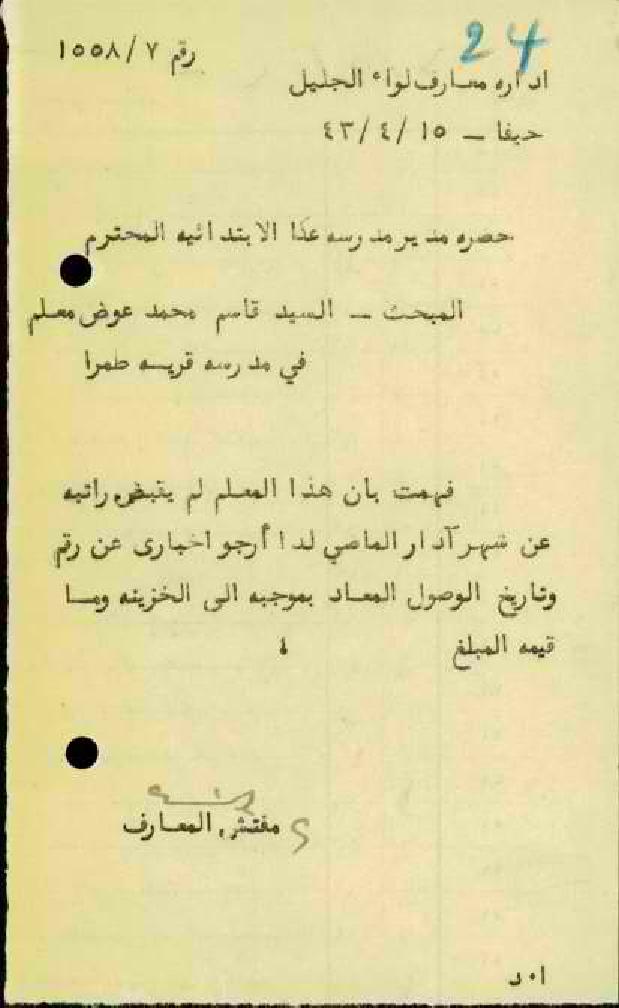 24
رقم ٧/١٥٥٨
اداره معارف لواء الجليل
حيفا – ١٥/٤/٤٣
حضره مدير مدرسه عكا الابتدائيه المحترم
المبحث – السيد قاسم محمد عوض معلم
في مدرسه قريه طمرا
فهمت بان هذا المعلم لم يقبض راتبه
عن شهر آدار الماضي لدا أرجو اخبارى عن رقم
وتاريخ الوصول المعاد بموجبه الى الخزينه وما
قيمه المبلغ
مفتش المعارف